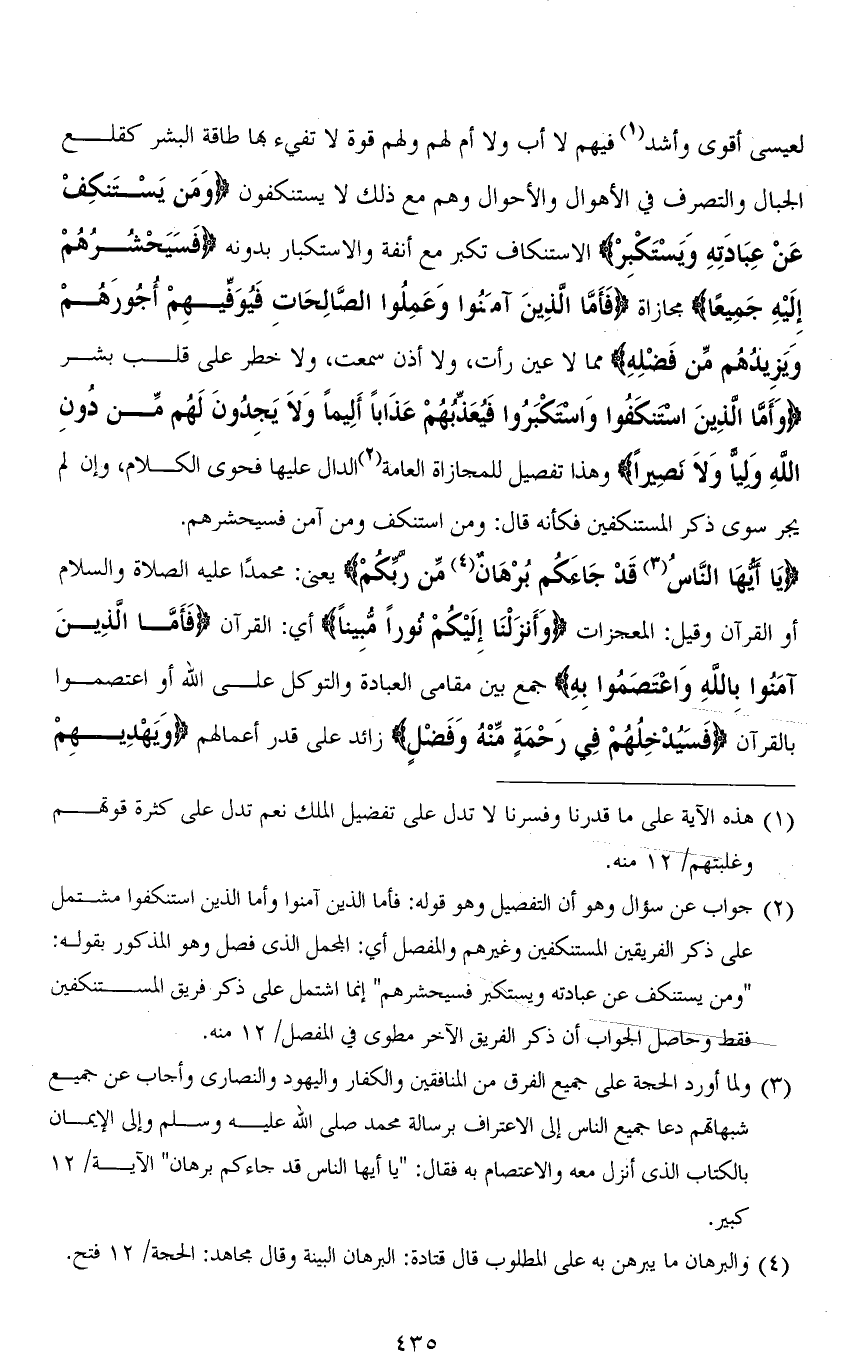 لعيسى أقوى وأشد(١) فيهم لا أب ولا أم لهم ولهم قوة لا تفيء بها طاقة البشر كقلـــع
الجبال والتصرف في الأهوال والأحوال وهم مع ذلك لا يستنكفون ﴿وَمَن يَسْــتَنكِفْ
عَنْ عِبَادَتِهِ وَيَسْتَكْبِرْ﴾ الاستنكاف تكبر مع أنفة والاستكبار بدونه ﴿فَسَيَحْشُــرُهُمْ
إِلَيْهِ جَمِيعًا﴾ مجازاة ﴿فَأَمَّا الَّذِينَ آمَنُوا وَعَمِلُوا الصَّالِحَاتِ فَيُوَفِّيــهِمْ أُجُورَهُــمْ
وَيَزِيدُهُم مِّن فَضْلِهِ﴾ مما لا عين رأت، ولا أذن سمعت، ولا خطر على قلــب بشــر
﴿وَأَمَّا الَّذِينَ اسْتَنكَفُوا وَاسْتَكْبَرُوا فَيُعَذِّبُهُمْ عَذَاباً أَلِيماً وَلاَ يَجِدُونَ لَهُم مِّــن دُونِ
اللَّهِ وَلِياًّ وَلاَ نَصِيراً﴾ وهذا تفصيل للمجازاة العامة(٢)الدال عليها فحوى الكــلام، وإن لم
يجر سوى ذكر المستنكفين فكأنه قال: ومن استنكف ومن آمن فسيحشرهم.
﴿يَا أَيُّهَا النَّاسُ(٣) قَدْ جَاءَكُم بُرْهَانٌ(٤) مِّن رَّبِّكُمْ﴾ يعنى: محمدًا عليه الصلاة والسلام
أو القرآن وقيل: المعجزات ﴿وَأَنزَلْنَا إِلَيْكُمْ نُوراً مُّبِيناً﴾ أي: القرآن ﴿فَأَمَّــا الَّذِيــنَ
آمَنُوا بِاللَّهِ وَاعْتَصَمُوا بِهِ﴾ جمع بين مقامى العبادة والتوكل علــى الله أو اعتصمــوا
بالقرآن ﴿فَسَيُدْخِلُهُمْ فِي رَحْمَةٍ مِّنْهُ وَفَضْلٍ﴾ زائد على قدر أعمالهم ﴿وَيَهْدِيــهِمْ
(١) هذه الآية على ما قدرنا وفسرنا لا تدل على تفضيل الملك نعم تدل على كثرة قوتهــم
وغلبتهم/ ١٢ منه.
(٢) جواب عن سؤال وهو أن التفصيل وهو قوله: فأما الذين آمنوا وأما الذين استنكفوا مشــتمل
على ذكر الفريقين المستنكفين وغيرهم والمفصل أي: المجمل الذى فصل وهو المذكور بقولــه:
"ومن يستنكف عن عبادته ويستكبر فسيحشرهم" إنما اشتمل على ذكر فريق المســتنكفين
فقط وحاصل الجواب أن ذكر الفريق الآخر مطوى في المفصل/ ١٢ منه.
(٣) ولما أورد الحجة على جميع الفرق من المنافقين والكفار واليهود والنصارى وأجاب عن جميــع
شبهاتهم دعا جميع الناس إلى الاعتراف برسالة محمد صلى الله عليــه وســلم وإلى الإيمــان
بالكتاب الذى أنزل معه والاعتصام به فقال: "يا أيها الناس قد جاءكم برهان" الآيــة/ ١٢
كبير.
(٤) والبرهان ما يبرهن به على المطلوب قال قتادة: البرهان البينة وقال مجاهد: الحجة/ ١٢ فتح.
٤٣٥